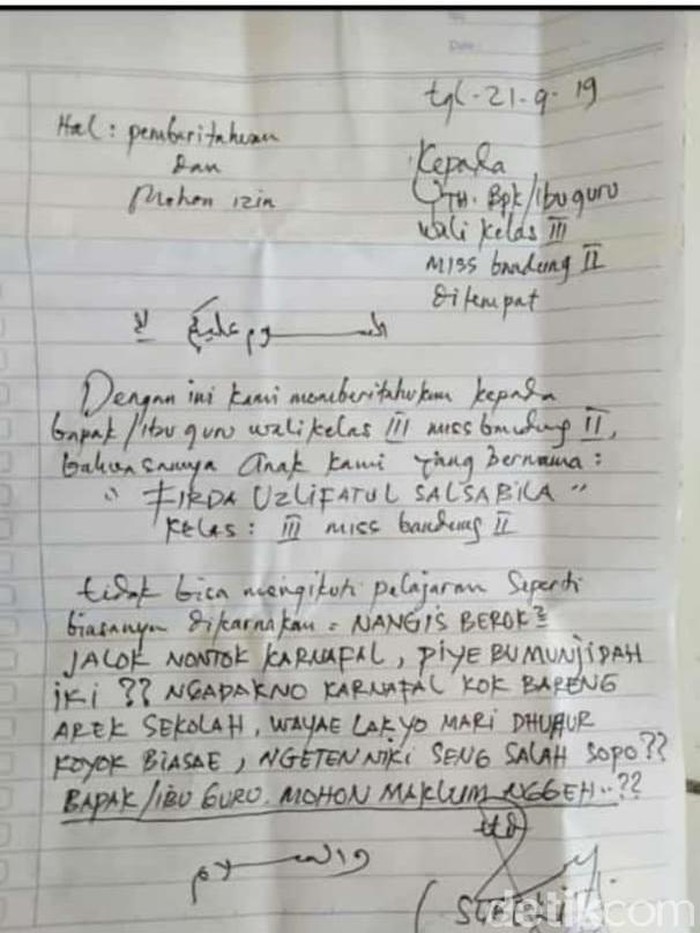 tgl. 21-9-19
Hal : pemberitahuan
dan
Mohon izin
Kepada
YTH. Bpk/ibu guru
wali kelas III
MISS bandung II
ditempat
السـلـوم عليكم
Dengan ini kami memberitahukan kepada
bapak/ibu guru wali kelas III miss bandung II,
bahwasannya anak kami yang bernama :
" FIRDA UZLIFATUL SALSABILA "
Kelas : III miss bandung II
tidak bisa mengikuti pelajaran seperti
biasanya dikarnakan = NANGIS BEROK²
JALOK NONTOK KARNAFAL, PIYE BU MUNJIDAH
IKI ?? NGADAKNO KARNAFAL KOK BARENG
AREK SEKOLAH, WAYAE LAK YO MARI DHUHUR
KOYOK BIASAE, NGETEN NIKI SENG SALAH SOPO??
BAPAK/IBU GURU. MOHON MAKLUM NGGEH..??
ttd
والسـلام
detikcom